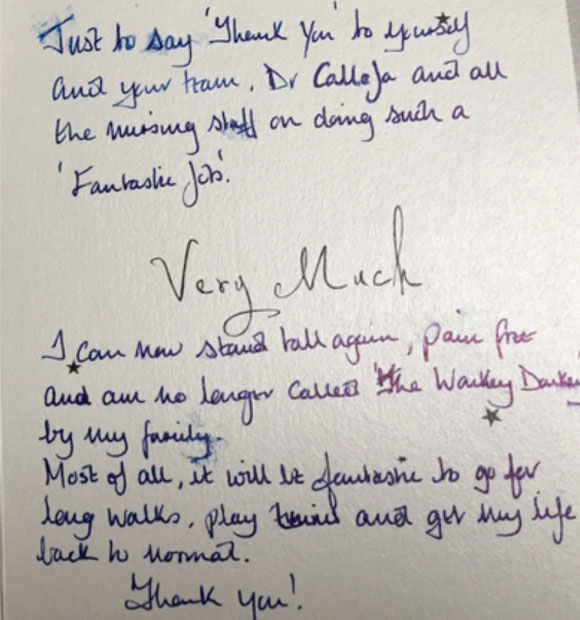 Just to say 'Thank You' to yourself
and your team, Dr Calleja and all
the nursing staff on doing such a
'Fantastic Job'.
Very Much
I can now stand tall again, pain free
and am no longer called 'The Wonkey Donkey
by my family.
Most of all, it will be fantastic to go for
long walks, play tennis and get my life
back to normal.
Thank you!